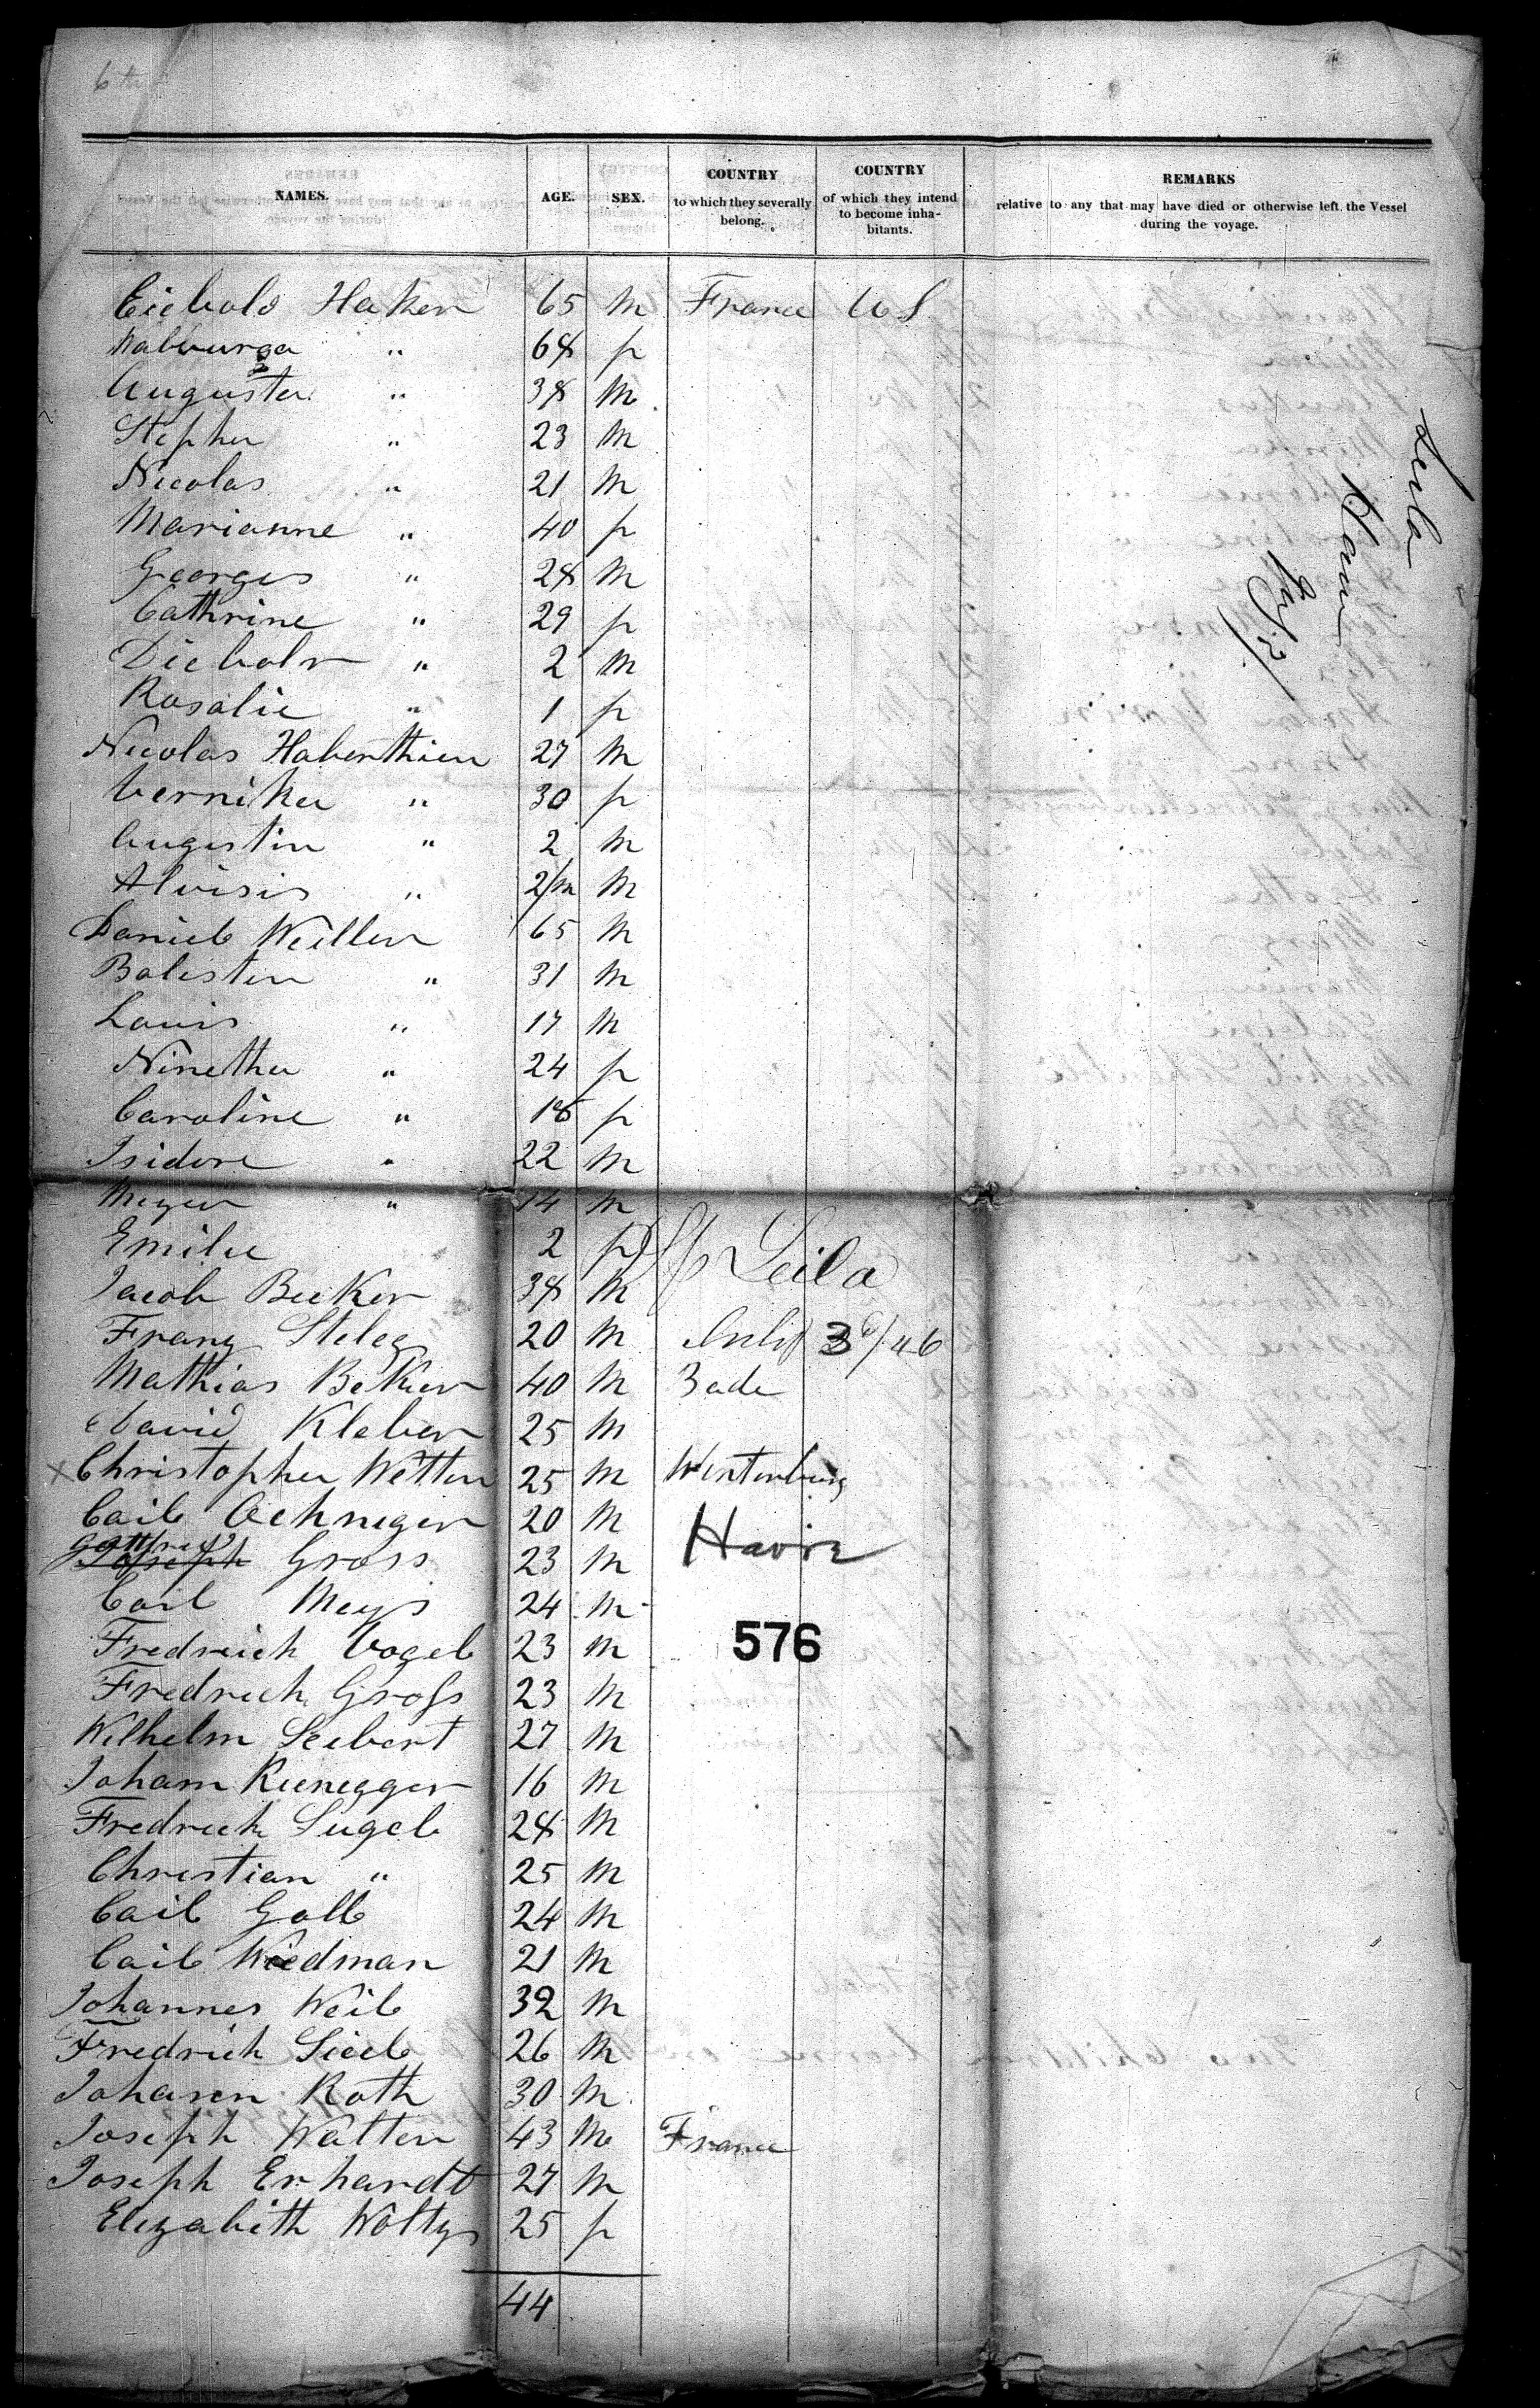 6th
NAMES. AGE. SEX. COUNTRY to which they severally belong. COUNTRY of which they intend to become inhabitants. REMARKS relative to any that may have died or otherwise left the Vessel during the voyage.
Haken 65 m France US
Walburga " 68 f
Auguste " 38 m
Stephen " 23 m
Nicolas " 21 m
Marianne " 40 f
Georges " 28 m
Cathrine " 29 f
Diebold " 2 m
Rosalie " 1 f
Nicolas Haberthien 27 m
Vernika " 30 f
Augustin " 2 m
Aloisis " 2/m m
Daniel Weiller 65 m
Balisten " 31 m
Louis " 17 m
Ninetha " 24 f
Caroline " 18 f
Isidore " 22 m
Meyer " 14 m
Emilie 2 f
Sp Leila
Jacob Becker 38 m
Franz 20 m 3d/46
Mathias Bekker 40 m Bade
David Kleber 25 m
x Christopher Wetten 25 m Wirtenburg
Carl Oehneger 20 m
Gottfried Joseph Gross 23 m Havre
Carl Meys 24 m
Fredrich Vogel 23 m 576
Fredrich Gross 23 m
Wilhelm Seebert 27 m
Joham Kienegger 16 m
Fredrich Sugel 28 m
Christian " 25 m
Carl Goll 24 m
Carl Wiedman 21 m
Johannes Weil 32 m
Fredrich Sieel 26 m
Johann Roth 30 m
Joseph Watter 43 m France
Joseph Erhardt 27 m
Elizabeth Woltys 25 f
44
Leila
Havre